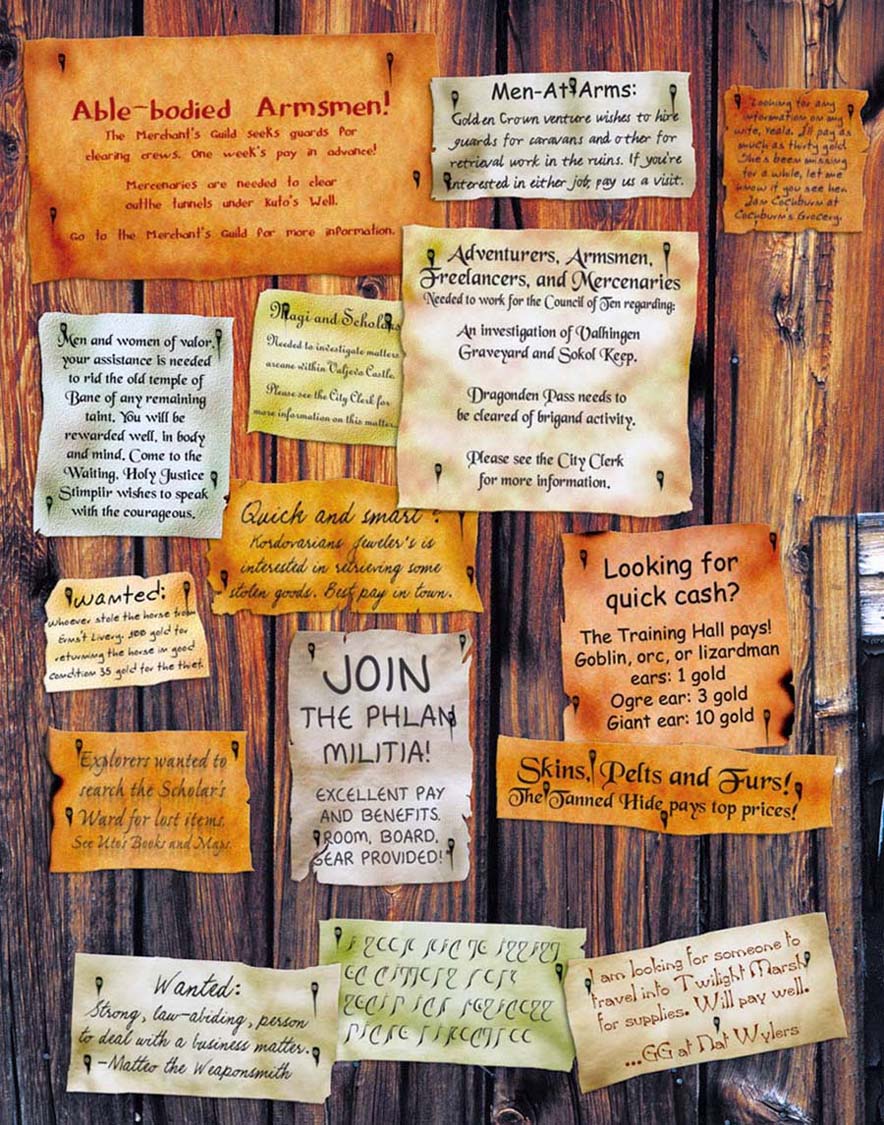 Able-bodied Armsmen!
The Merchant's Guild seeks guards for
clearing crews. One week's pay in advance!
Mercenaries are needed to clear
outthe tunnels under Kuto's Well.
Go to the Merchant's Guild for more information.
Men-At-Arms:
Golden Crown venture wishes to hire
guards for caravans and other for
retrieval work in the ruins. If you're
interested in either job, pay us a visit.
Looking for any
information on my
wife, Veala. I'll pay as
much as thirty gold.
She's been missing
for a while, let me
know if you see her.
Jan Cockburn at
Cockburn's Grocery.
Adventurers, Armsmen,
Freelancers, and Mercenaries
Needed to work for the Council of Ten regarding:
An investigation of Valhingen
Graveyard and Sokol Keep.
Dragonden Pass needs to
be cleared of brigand activity.
Please see the City Clerk
for more information.
Magi and Scholars
Needed to investigate matters
arcane within Valjevo Castle.
Please see the City Clerk for
more information on this matter.
Men and women of valor,
your assistance is needed
to rid the old temple of
Bane of any remaining
taint. You will be
rewarded well, in body
and mind. Come to the
Waiting. Holy Justice
Stimpiir wishes to speak
with the courageous.
Quick and smart?
Kordovarians Jeweler's is
interested in retrieving some
stolen goods. Best pay in town.
Wanted:
Whoever stole the horse from
Erns't Livery. 100 gold for
returning the horse in good
condition 35 gold for the thief.
Looking for
quick cash?
The Training Hall pays!
Goblin, orc, or lizardman
ears: 1 gold
Ogre ear: 3 gold
Giant ear: 10 gold
JOIN
THE PHLAN
MILITIA!
EXCELLENT PAY
AND BENEFITS.
ROOM, BOARD,
GEAR PROVIDED!
Explorers wanted to
search the Scholar's
Ward for lost items.
See Uto's Books and Maps.
Skins, Pelts and Furs!
The Tanned Hide pays top prices!
Wanted:
Strong, law-abiding, person
to deal with a business matter.
-Matteo the Weaponsmith
I am looking for someone to
travel into Twilight Marsh
for supplies. Will pay well.
...GG at Nat Wylers